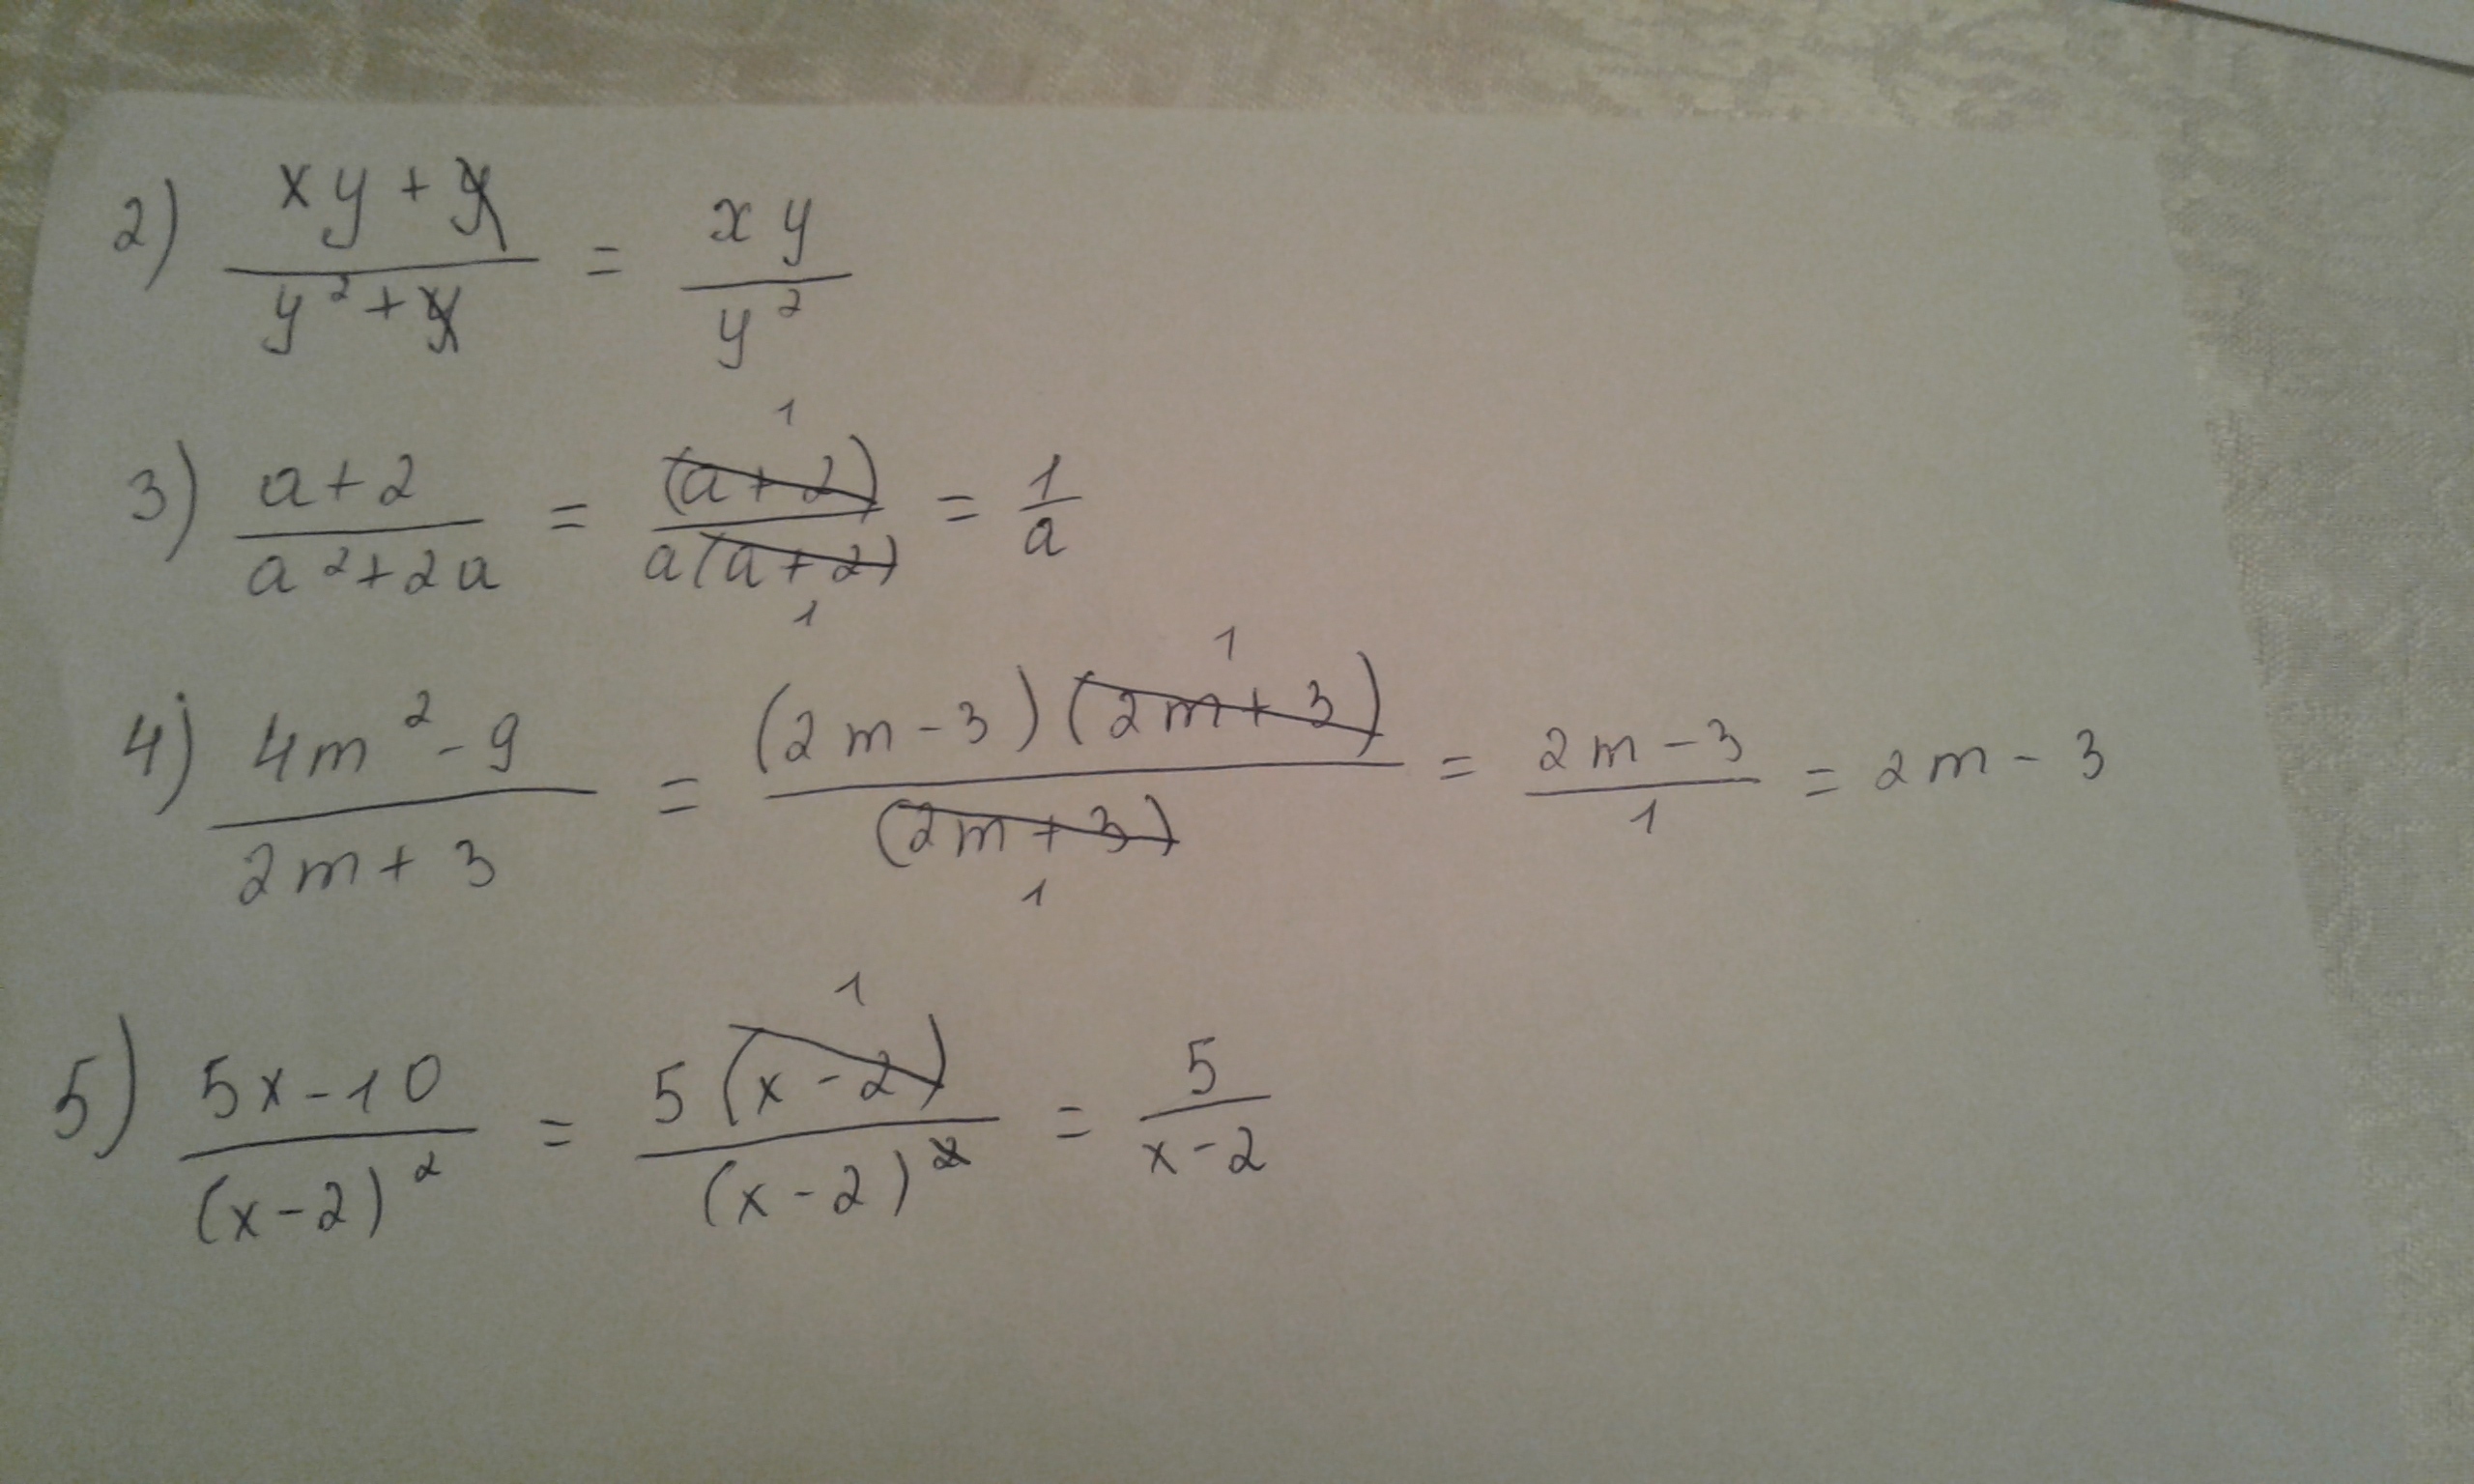 2) (xy + y)/(y² + y) = xy/y²
3) (a + 2)/(a² + 2a) = (a + 2)/(a(a + 2)) = 1/a
4) (4m² - 9)/(2m + 3) = ((2m - 3)(2m + 3))/((2m + 3)) = (2m - 3)/1 = 2m - 3
5) (5x - 10)/((x - 2)²) = (5(x - 2))/((x - 2)²) = 5/(x - 2)